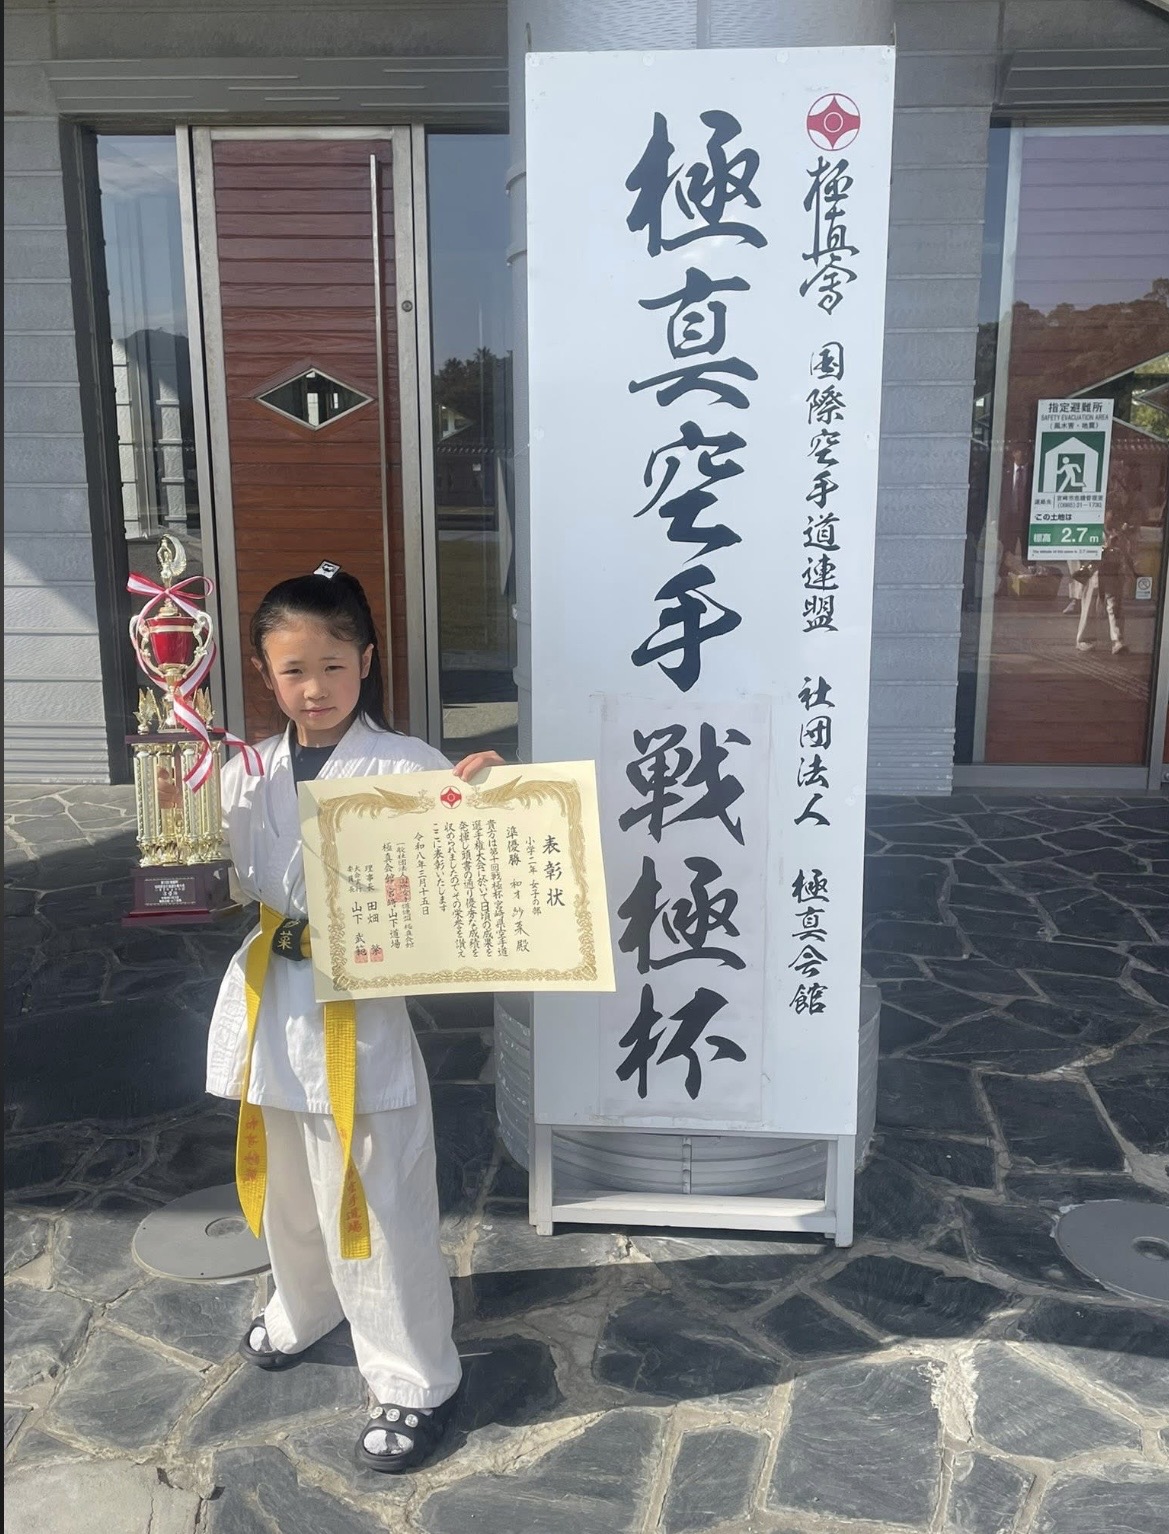 極真會 国際空手道連盟 社団法人 極真会館
極真空手
戦極杯
表彰状
小学二年 女子の部
準優勝
殿
貴方は第十回戦極杯宮崎県空手道
選手権大会に於いて日頃の成果を
発揮し頭書の通り優秀な成績を
収められましたのでその栄誉を讃え
ここに表彰いたします
令和八年三月十五日
極真会館 宮崎山下道場
理事長 田畑 繁
山下
菜
指定避難所
SAFETY EVACUATION AREA
(風水害・地震)
この土地は
標高 2.7m